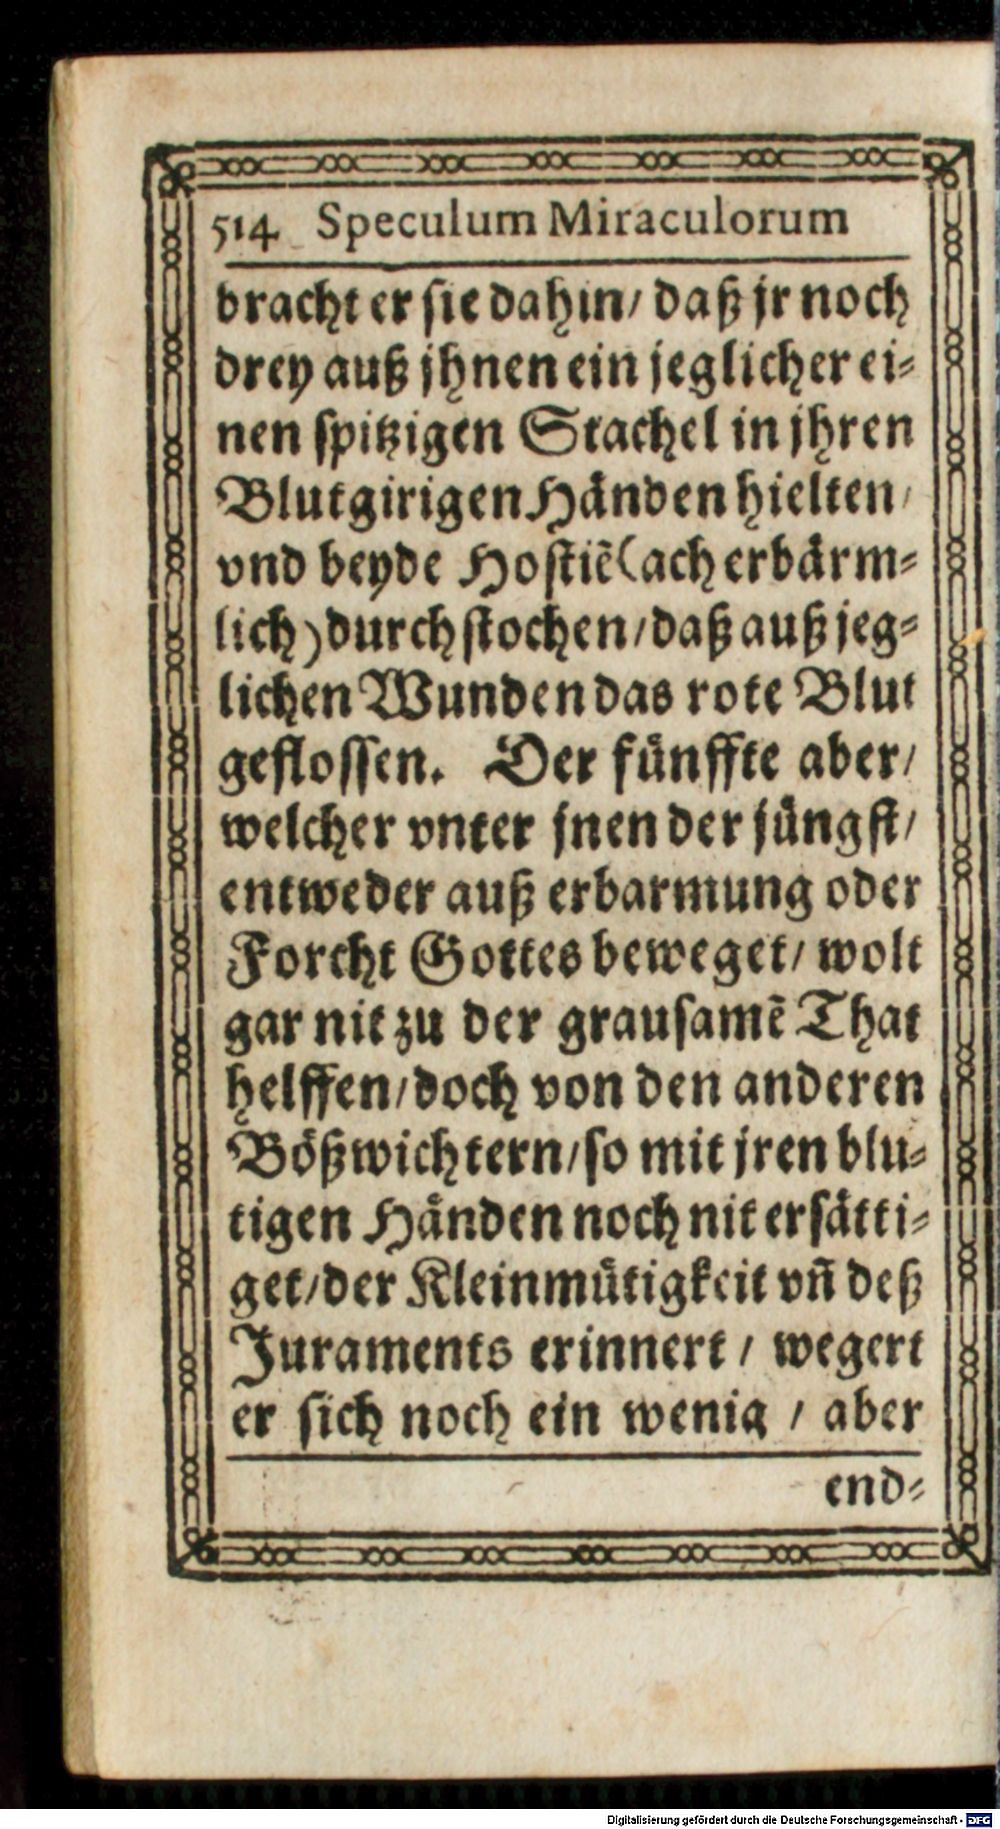 514 Speculum Miraculorum
bracht er sie dahin/ daß jr noch
drey auß jhnen ein jeglicher ei-
nen spitzigen Stachel in jhren
Blutgirigen Händen hielten/
vnd beyde Hostiẽ (ach erbärm-
lich) durchstochen/ daß auß jeg-
lichen Wunden das rote Blut
geflossen. Der fünffte aber/
welcher vnter jnen der jüngst/
entweder auß erbarmung oder
Forcht Gottes beweget/ wolt
gar nit zu der grausamẽ That
helffen/ doch von den anderen
Bößwichtern/ so mit jren blu-
tigen Händen noch nit ersätti-
get/ der Kleinmütigkeit vñ deß
Juraments erinnert / wegert
er sich noch ein wenig / aber
end-
Digitalisierung gefördert durch die Deutsche Forschungsgemeinschaft - DFG